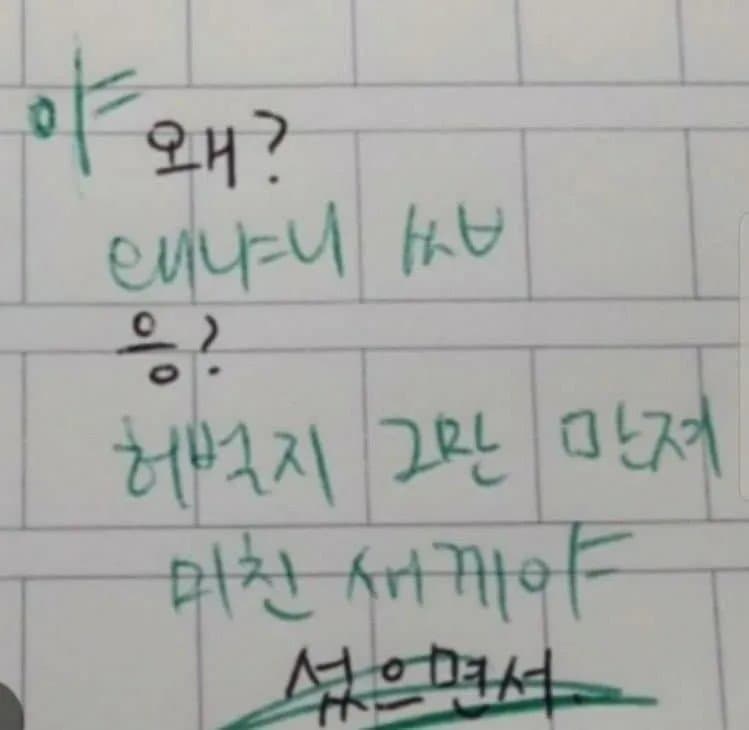 야
왜?
태냐니 씹
응?
허벅지 그만 만져
미친 새끼야
섰으면서.